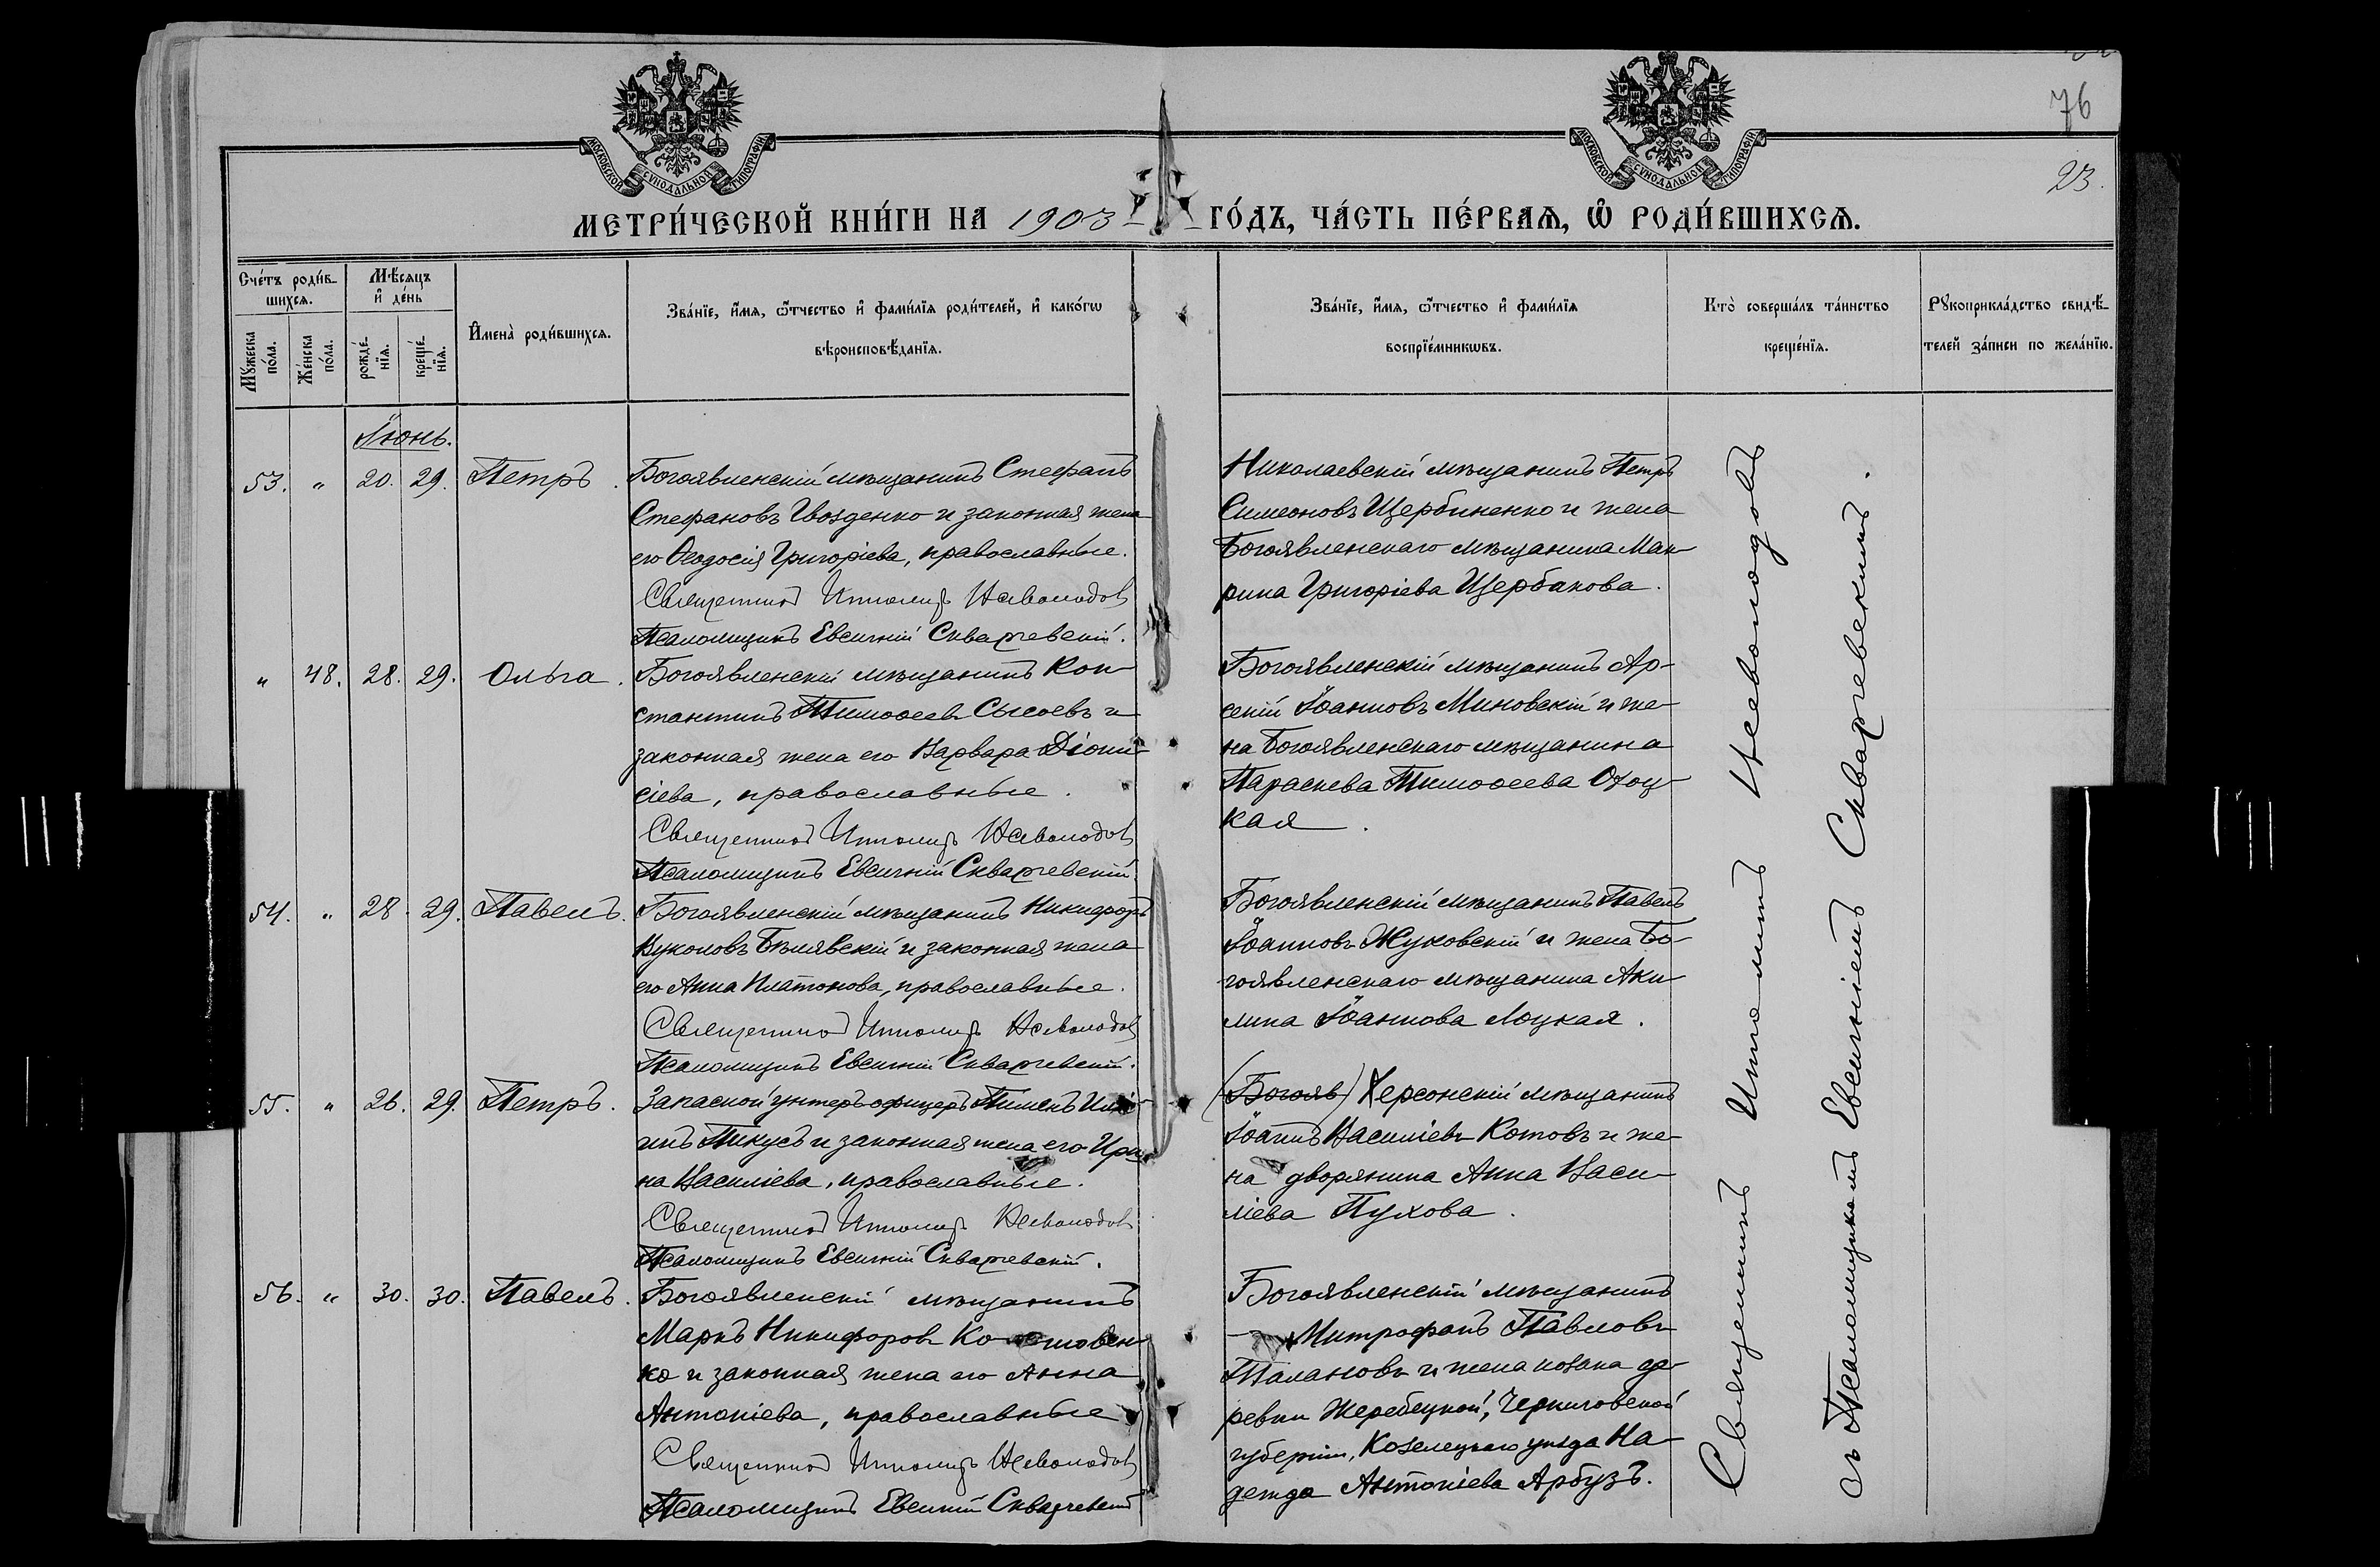 76
23.
МОСКОВСКОЙ СѴНОДАЛЬНОЙ ТИПОГРАФІИ
МОСКОВСКОЙ СѴНОДАЛЬНОЙ ТИПОГРАФІИ
МЕТРИ́ЧЕСКОЙ КНИ́ГИ НА 1903 ГО́ДЪ, ЧА́СТЬ ПЕ́РВАѦ, Ѽ РОДИ́ВШИХСѦ.
Сче́тъ роди́в-
шихсѧ.
Мꙋ́жеска по́ла.
Же́нска по́ла.
Мѣ́сѧцъ и҆ де́нь
рожде́-
нїѧ.
креще́-
нїѧ.
И҆мена̀ роди́вшихсѧ.
Зва́нїе, и҆́мѧ, ѻ҆́тчество и҆ фами́лїѧ роди́телей, и҆ како́гѡ
вѣроисповѣ́данїѧ.
Зва́нїе, и҆́мѧ, ѻ҆́тчество и҆ фами́лїѧ
воспрїе́мникѡвъ.
Кто̀ соверша́лъ та́инство
креще́нїѧ.
Рꙋкоприкла́дство свидѣ́-
телей за́писи по жела́нїю.
Іюнь.
53. " 20. 29. Петръ.
Богоявленскій мѣщанинъ Стефанъ
Стефановъ Гвозденко и законная жена
его Ѳеодосія Григоріева, православные.
Священникъ Ипполитъ Неволодовъ
Псаломщикъ Евсигній Скваржевскій.
Николаевскій мѣщанинъ Петръ
Симеоновъ Щербиненко и жена
Богоявленскаго мѣщанина Ма-
рина Григоріева Щербакова.
" 48. 28. 29. Ольга.
Богоявленскій мѣщанинъ Кон-
стантинъ Тимоѳеевъ Сысоевъ и
законная жена его Варвара Діони-
сіева, православные.
Священникъ Ипполитъ Неволодовъ
Псаломщикъ Евсигній Скваржевскій.
Богоявленскій мѣщанинъ Ар-
сеній Іоанновъ Миновскій и же-
на Богоявленскаго мѣщанина
Параскева Тимоѳеева
кая.
54. " 28. 29. Павелъ.
Богоявленскій мѣщанинъ Никифоръ
Вуколовъ Бѣлявскій и законная жена
его Анна Платонова, православные.
Священникъ Ипполитъ Неволодовъ
Псаломщикъ Евсигній Скваржевскій.
Богоявленскій мѣщанинъ Павелъ
Іоанновъ Жуковскій и жена Бо-
гоявленскаго мѣщанина Аки-
лина Іоаннова Лоцкая.
55. " 26. 29. Петръ.
Запасной унтеръ-офицеръ Пименъ
Пикусъ и законная жена его Ири-
на Василіева, православные.
Священникъ Ипполитъ Неволодовъ
Псаломщикъ Евсигній Скваржевскій.
(Богояв) Херсонскій мѣщанинъ
Іоаннъ Василіевъ Котовъ и же-
на дворянина Анна Васи-
ліева Пухова.
56. " 30. 30. Павелъ.
Богоявленскій мѣщанинъ
Маркъ Никифоровъ
ко и законная жена его Анна
Антоніева, православные
Священникъ Ипполитъ Неволодовъ
Псаломщикъ Евсигній Скваржевскій
Богоявленскій мѣщанинъ
Митрофанъ Павловъ
Талановъ и жена козака де-
ревни Жеребецкой, Черниговской
губерніи, Козелецкаго уѣзда На-
дежда Антоніева Арбузъ.
Священникъ Ипполитъ Неволодовъ
съ Псаломщикомъ Евсигніемъ Скваржевскимъ.